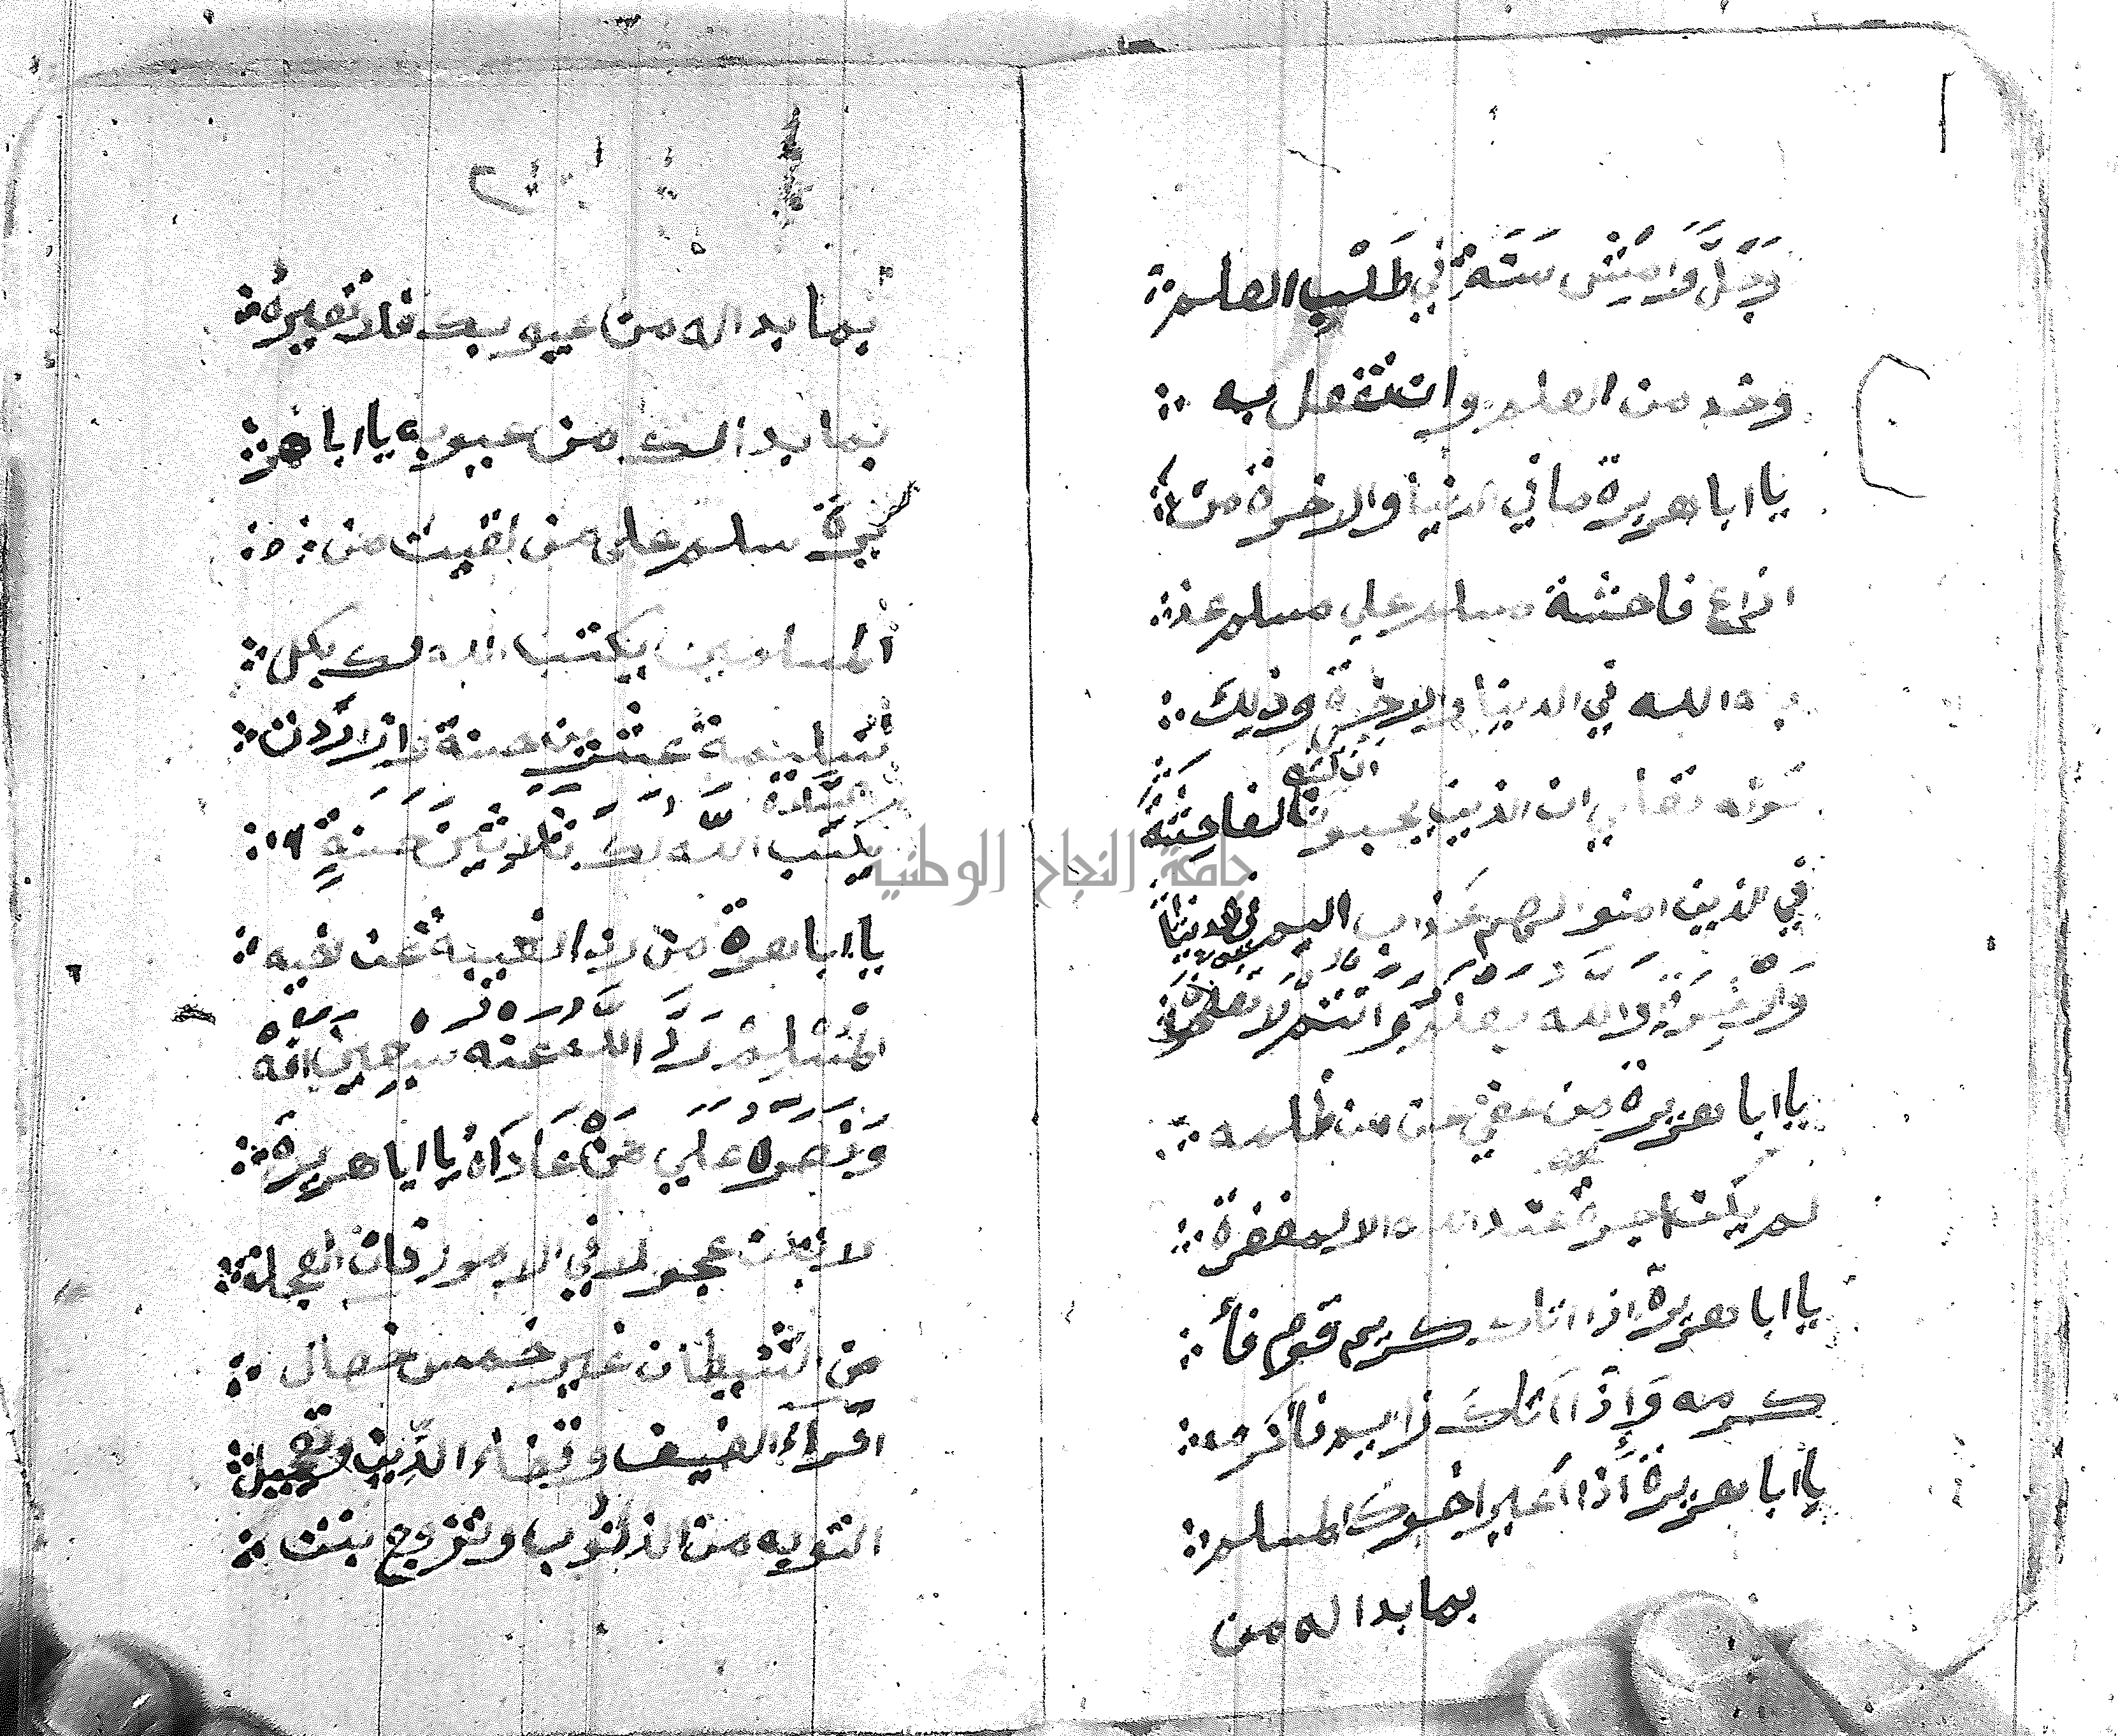 وَجَلَّ وَامْشِ سَنَةً فِي طَلَبِ العلم
وخد من العلم وانتفعل به
يا ابا هريرة ما في الدنيا والاخرة من
انواع فاحشة مسلم علي مسلم عذ
به الله في الدينا والاخرة وذلك
قوله تعالي ان الذين يحبون ان تشيع الفاحِشَةُ
في الذين امنوا لهم عذاب اليم في الدنيا
وَالاَخِرَةِ وَاللَّه يعلَمُ وَانْتُمْ لاَ تعلمون
يا ابا هريرة من عفي عن من ظلمه
لم يكن اجره عند الله الا المغفرة
يا ابا هريرة اذا اتاك كريم قوم فأ
كرمه وَإِذَا اتاكَ زايد فأكرمه
يا ابا هريرة أذا اعير اخوك المسلم
بما بدا له من
بما بدا له من عيوبك فلا تعيره
بما بدا لك من عيوبه يا ابا هر
يرة سلم على من لقيت من
المسلمين يكتب الله لك بكل
تسليمة عشرين حسنة وان رددت
يكتب اللَّه لك ثلاثين حسنةٍ
يا ابا هرة من رد الغيبه عن اخيه
المسْلِمْ رَدَّ اللَّه عنه سبعين افة
وَنَصَرَهُ عَلَي مَنْ عَادَاهُ يا ابا هريرة
لا تكن عجولا في الامور فان العجلة
من الشيطان غير خمس خصال
اقراء الضيف وقضاء الدِّين وتعجيل
التوبه من الذنُوب وتزوج بنت
جامعة النجاح الوطنية